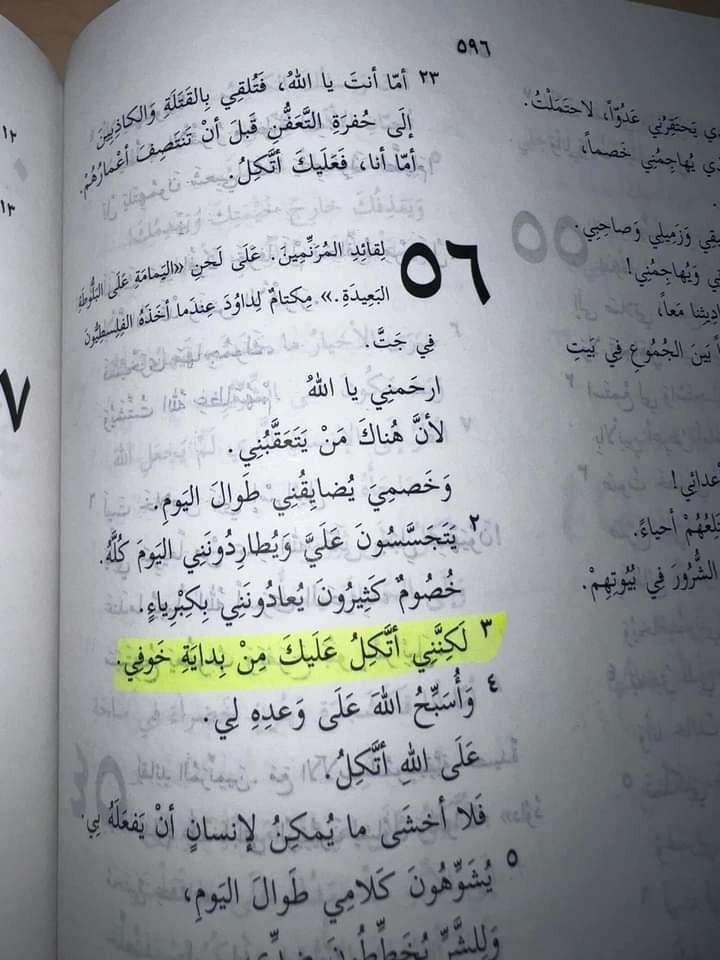 ٥٩٦
٢٣ أمّا أنتَ يا اللهُ، فَتُلقِي بِالقَتَلَةِ وَالكاذِبِينَ
إلَى حُفرَةِ التَّعَفُّنِ قَبلَ أنْ تَنتَصِفَ أعْمارُهُمْ.
أمّا أنا، فَعَلَيكَ أتَّكِلُ.
٥٦
لِقائِدِ المُرَنِّمِينَ. عَلَى لَحنِ «اليَمامَةِ عَلَى البَلُّوطَةِ
البَعِيدَةِ.» مِكتامٌ لِداوُدَ عِندَما أخَذَهُ الفِلِسطِيُّونَ
فِي جَتَّ.
ارحَمنِي يا اللهُ
لأنَّ هُناكَ مَنْ يَتَعَقَّبُنِي.
وَخَصمِيَ يُضايِقُنِي طَوالَ اليَومِ.
٢ يَتَجَسَّسُونَ عَلَيَّ وَيُطارِدُونَنِي اليَومَ كُلَّهُ.
خُصُومٌ كَثِيرُونَ يُعادُونَنِي بِكِبرِياءٍ.
٣ لَكِنَّنِي أتَّكِلُ عَلَيكَ مِنْ بِدايَةِ خَوفِي.
٤ وَأُسَبِّحُ اللهَ عَلَى وَعدِهِ لِي.
عَلَى اللهِ أتَّكِلُ.
فَلا أخشَى ما يُمكِنُ لإنسانٍ أنْ يَفعَلَهُ بِي.
٥ يُشَوِّهُونَ كَلامِي طَوالَ اليَومِ،
وَلِلشَّرِّ يُخَطِّطُونَ ضِدِّي.
يَحتَقِرُنِي عَدُوّاً، لاحتَمَلْتُ.
يُهاجِمُنِي خَصماً،
وَزَمِيلِي وَصاحِبِي.
وَيُهاجِمُنِي!
مَعاً،
بَينَ الجُمُوعِ فِي بَيتِ
أعدائِي!
أحياءً.
الشُّرُورَ فِي بُيُوتِهِمْ.
١٢
١٣
٧